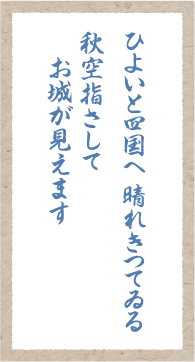 ひよいと四国へ 晴れきつてゐる
秋空指さして
お城が見えます